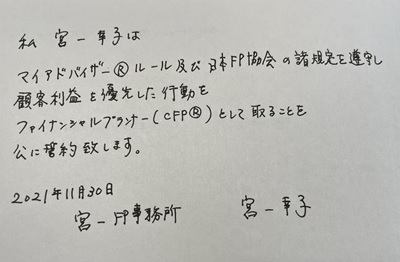 私 宮一幸子は
マイアドバイザー®ルール及び日本FP協会の諸規定を遵守し
顧客利益を優先した行動を
ファイナンシャルプランナー(CFP®)として取ることを
公に誓約致します。
2021年11月30日
宮一FP事務所 宮一幸子